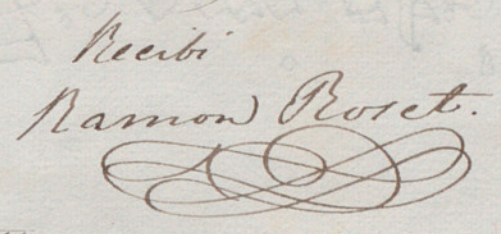 Recibi
Ramon Roset.